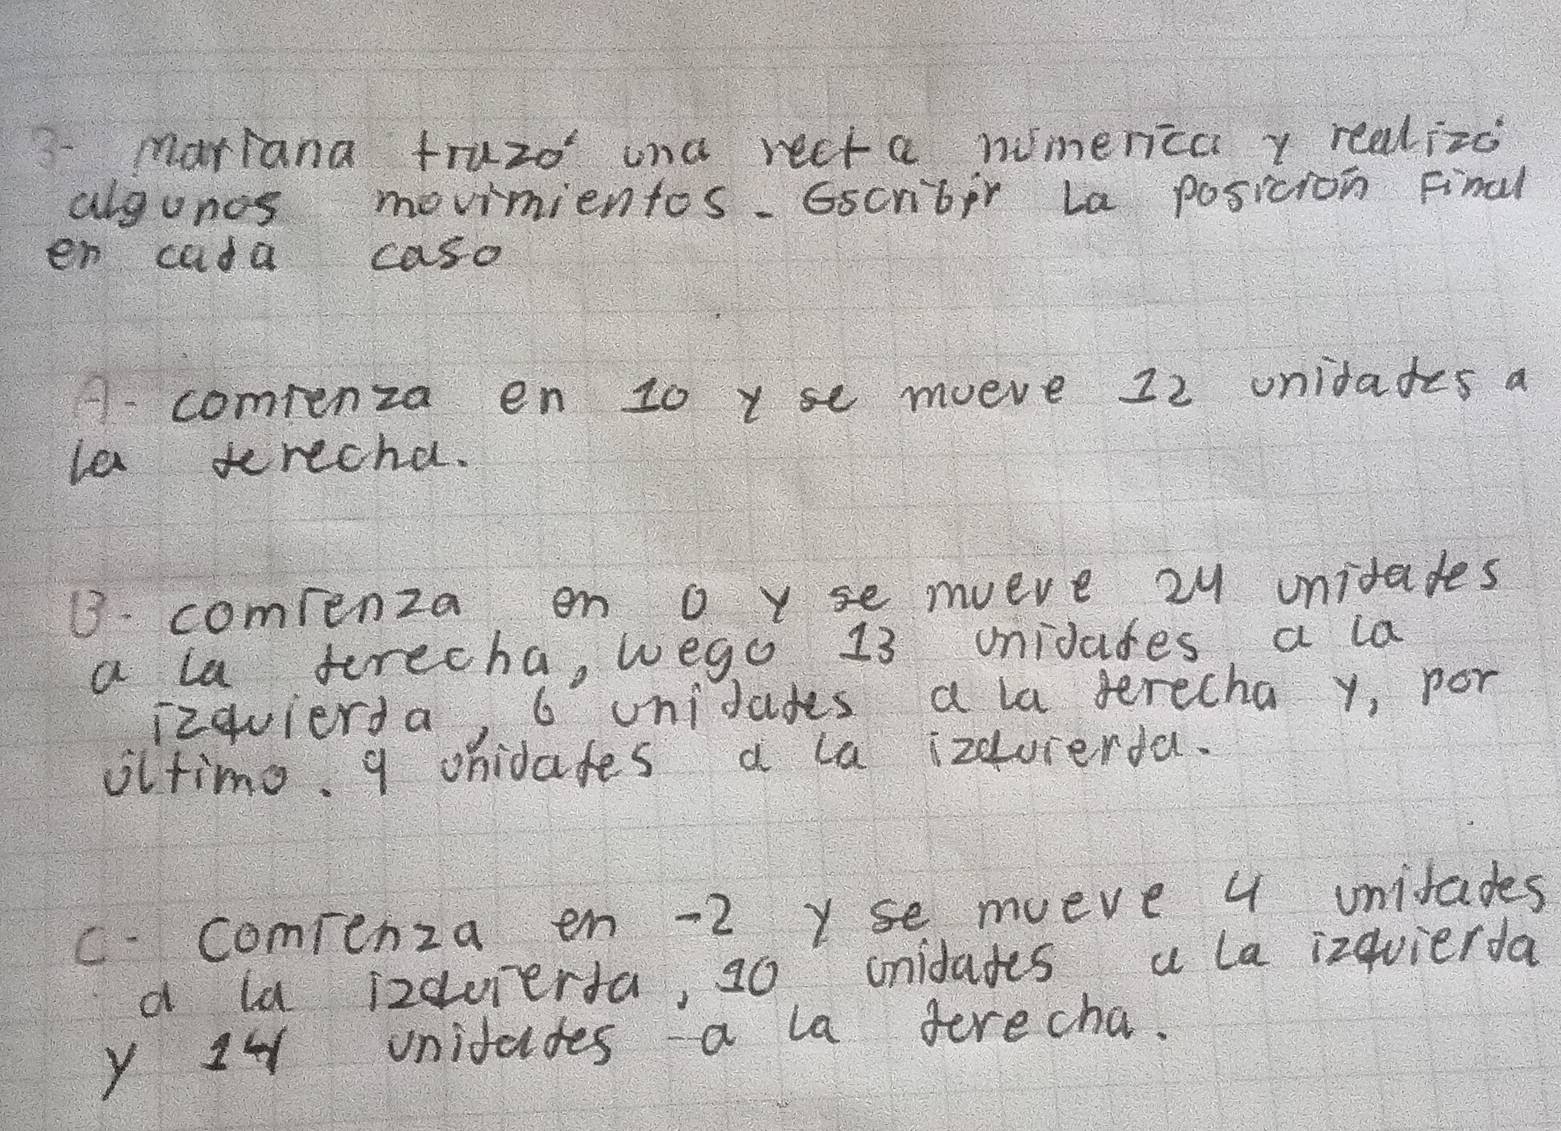 3- Mariana trazó una recta númerica y realizó
algunos movimientos. Escribir La posición Final
en cada caso
A- comienza en 10 y se mueve 12 unidades a
la derecha.
B- comienza en 0 y se mueve 24 unidades
a la derecha, luego 13 unidades a la
izquierda, 6 unidades a la derecha y, por
último. 9 unidades a la izquierda.
C- comienza en -2 y se mueve 4 unidades
a la izquierda, 10 unidades a la izquierda
y 14 unidades a la derecha.